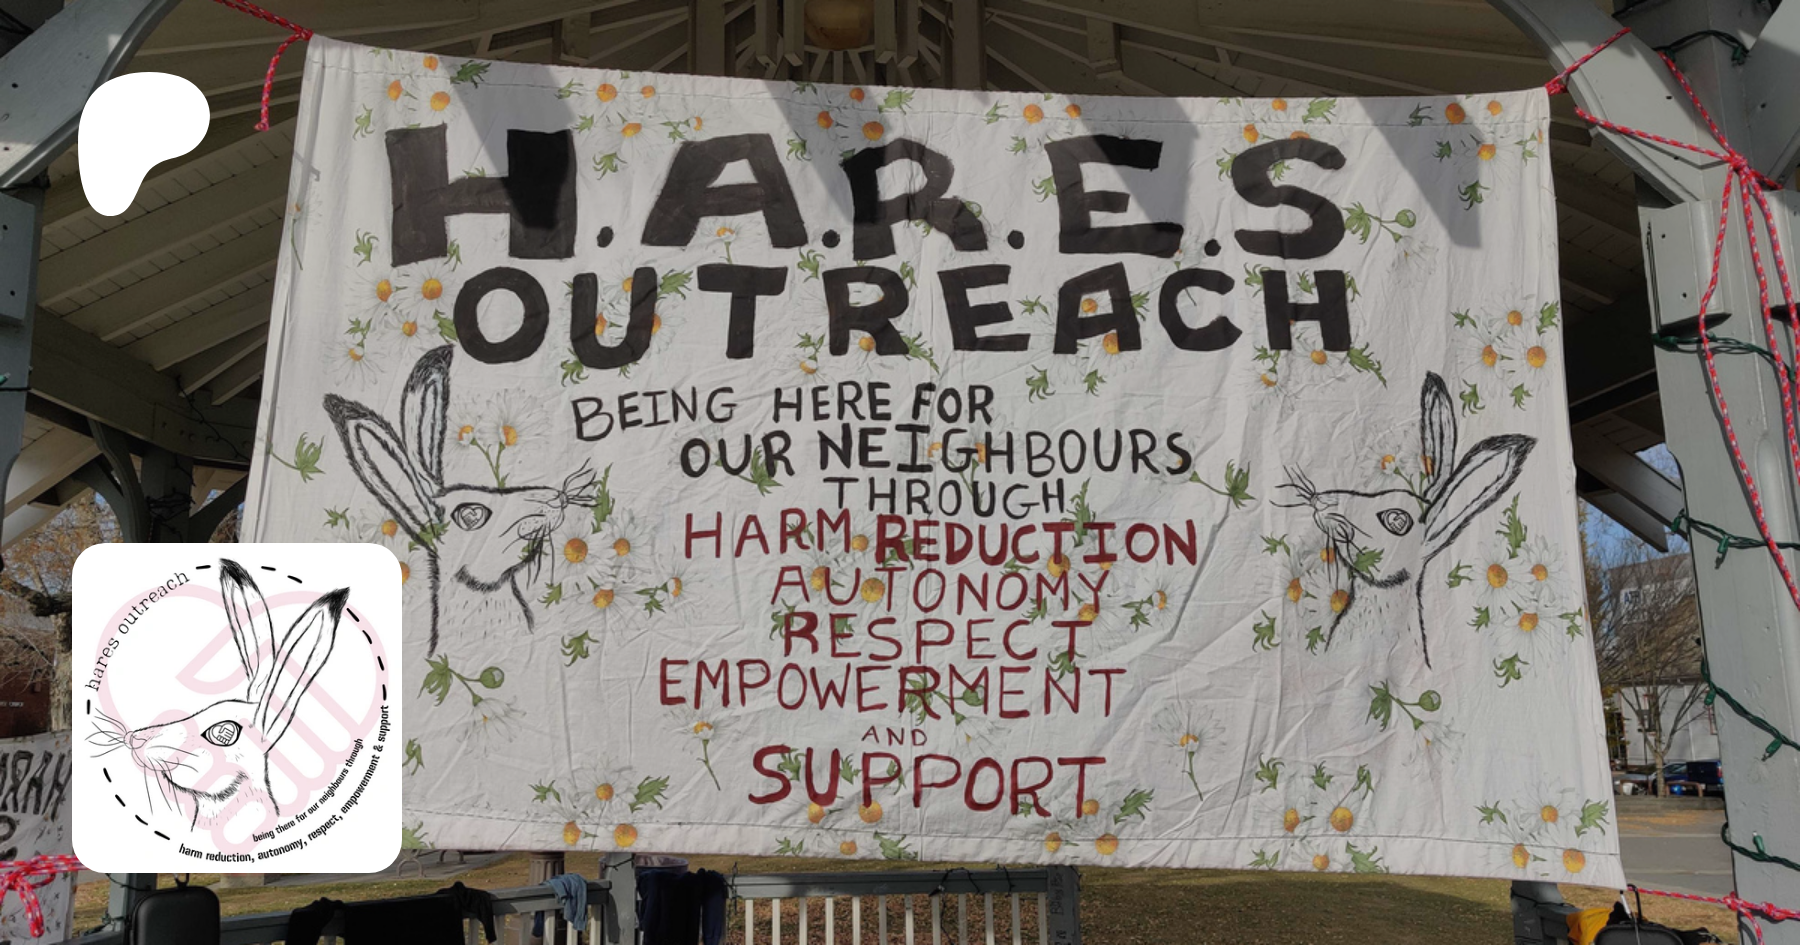 H.A.R.E.S
OUTREACH
BEING HERE FOR
OUR NEIGHBOURS
THROUGH
HARM REDUCTION
AUTONOMY
RESPECT
EMPOWERMENT
AND
SUPPORT
hares outreach
being there for our neighbours through
harm reduction, autonomy, respect, empowerment & support